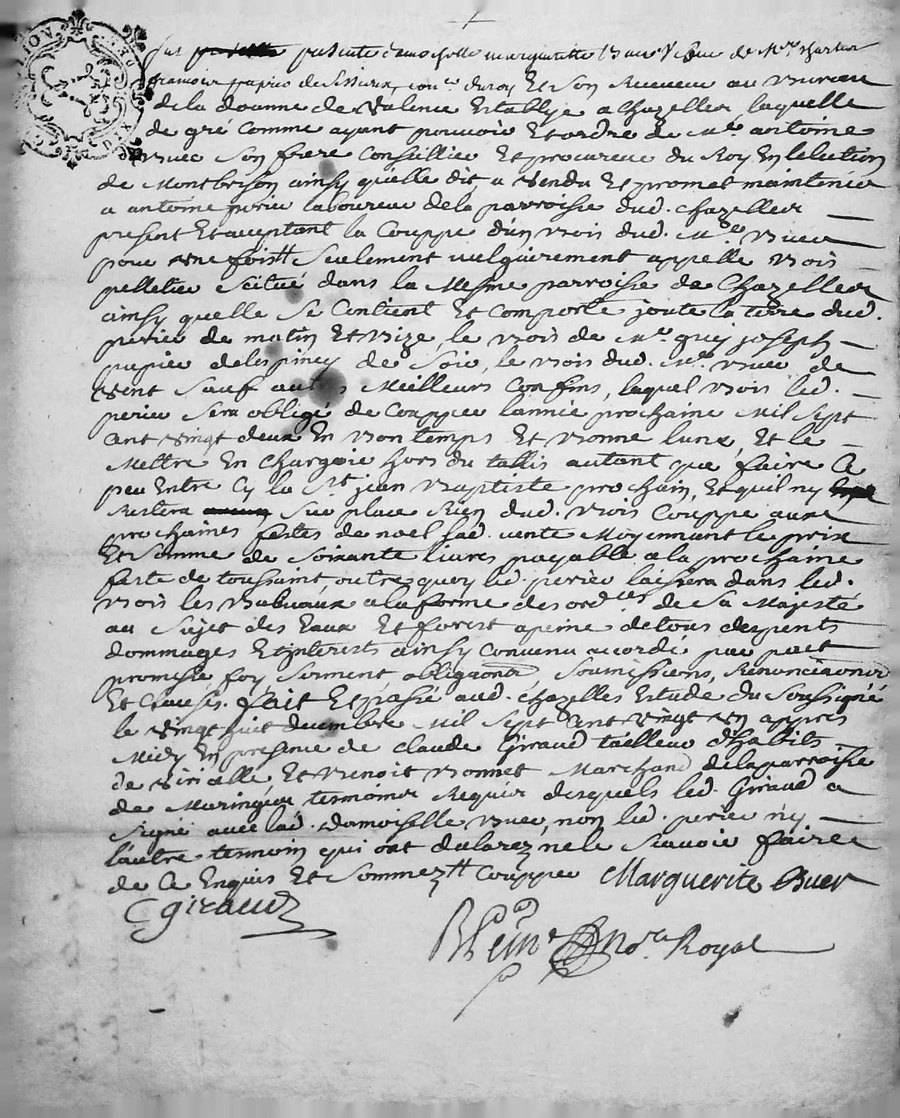 fut presente damoiselle marguerite Buer vefve de Mre
françois papier des Murs, conr du roy Et son Receveur au Bureau
de la doanne de valence Establye a Chazelles, laquelle
de gré comme ayant pouvoir Et ordre de Mre antoine
Buer son frere Conseillier Et procureur du Roy En lelection
de Montbrison ainsy quelle dit, a vendu Et promet maintenir
a antoine perier laboureur de la parroisse dud. Chazelles
present Et acceptant la Couppe d'un Bois dud. Mre Buer
pour une fois Seulement vulgairement appelle Bois
pelletier Scitué dans la Mesme parroisse de Chazelles
ainsy quelle Se Contient Et Comporte joute la terre dud.
perier de matin Et Bize, le Bois de Mre guy joseph
papier delespiney de Soir, le Bois dud. Mre Buer de
vent Sauf autres Meilleurs Confins, laquel Bois led.
perier Sera obligé de Coupper lannée prochaine Mil Sept
Cent vingt deux En Bon temps Et Bonne lune, Et le
Mettre En Chargeoie hors du tallis autant que faire Ce
peu Entre Cy la St jean Baptiste prochain, Et quil ny
Restera Sur place Rien dud. Bois Couppe aux
prochaines festes de noel lad. vente Moyennant le prix
Et Somme de Soixante livres payable a la prochaine
feste de toussaint, outre quoy led. perier laissera dans led.
Bois les Baliveaux a la forme des ordces de Sa Majesté
au Sujet des Eaux Et forest a peine de tous despents
dommages Et interests ainsy convenu accordé par pact
promesse, foy, Serment obligaons, Soumissions, Renonciaons
Et Clauses. fait Et passé aud. Chazelles Estude du Soussigné
le vingt huit decembre Mil Sept Cent vingt Un appres
Midy En presence de Claude Giraud tailleur d'habits
de viricelle Et Benoit Bonnet Marchand de la parroisse
de Maringes tesmoins Requis desquels led. Giraud a
Signé avec lad. damoiselle Buer, non led. perier ny
l'autre tesmoin qui ont declarez ne le Scavoir faire
de Ce Enquis Et Sommez Couppe Marguerite Buer
C giraud
Nore Royal